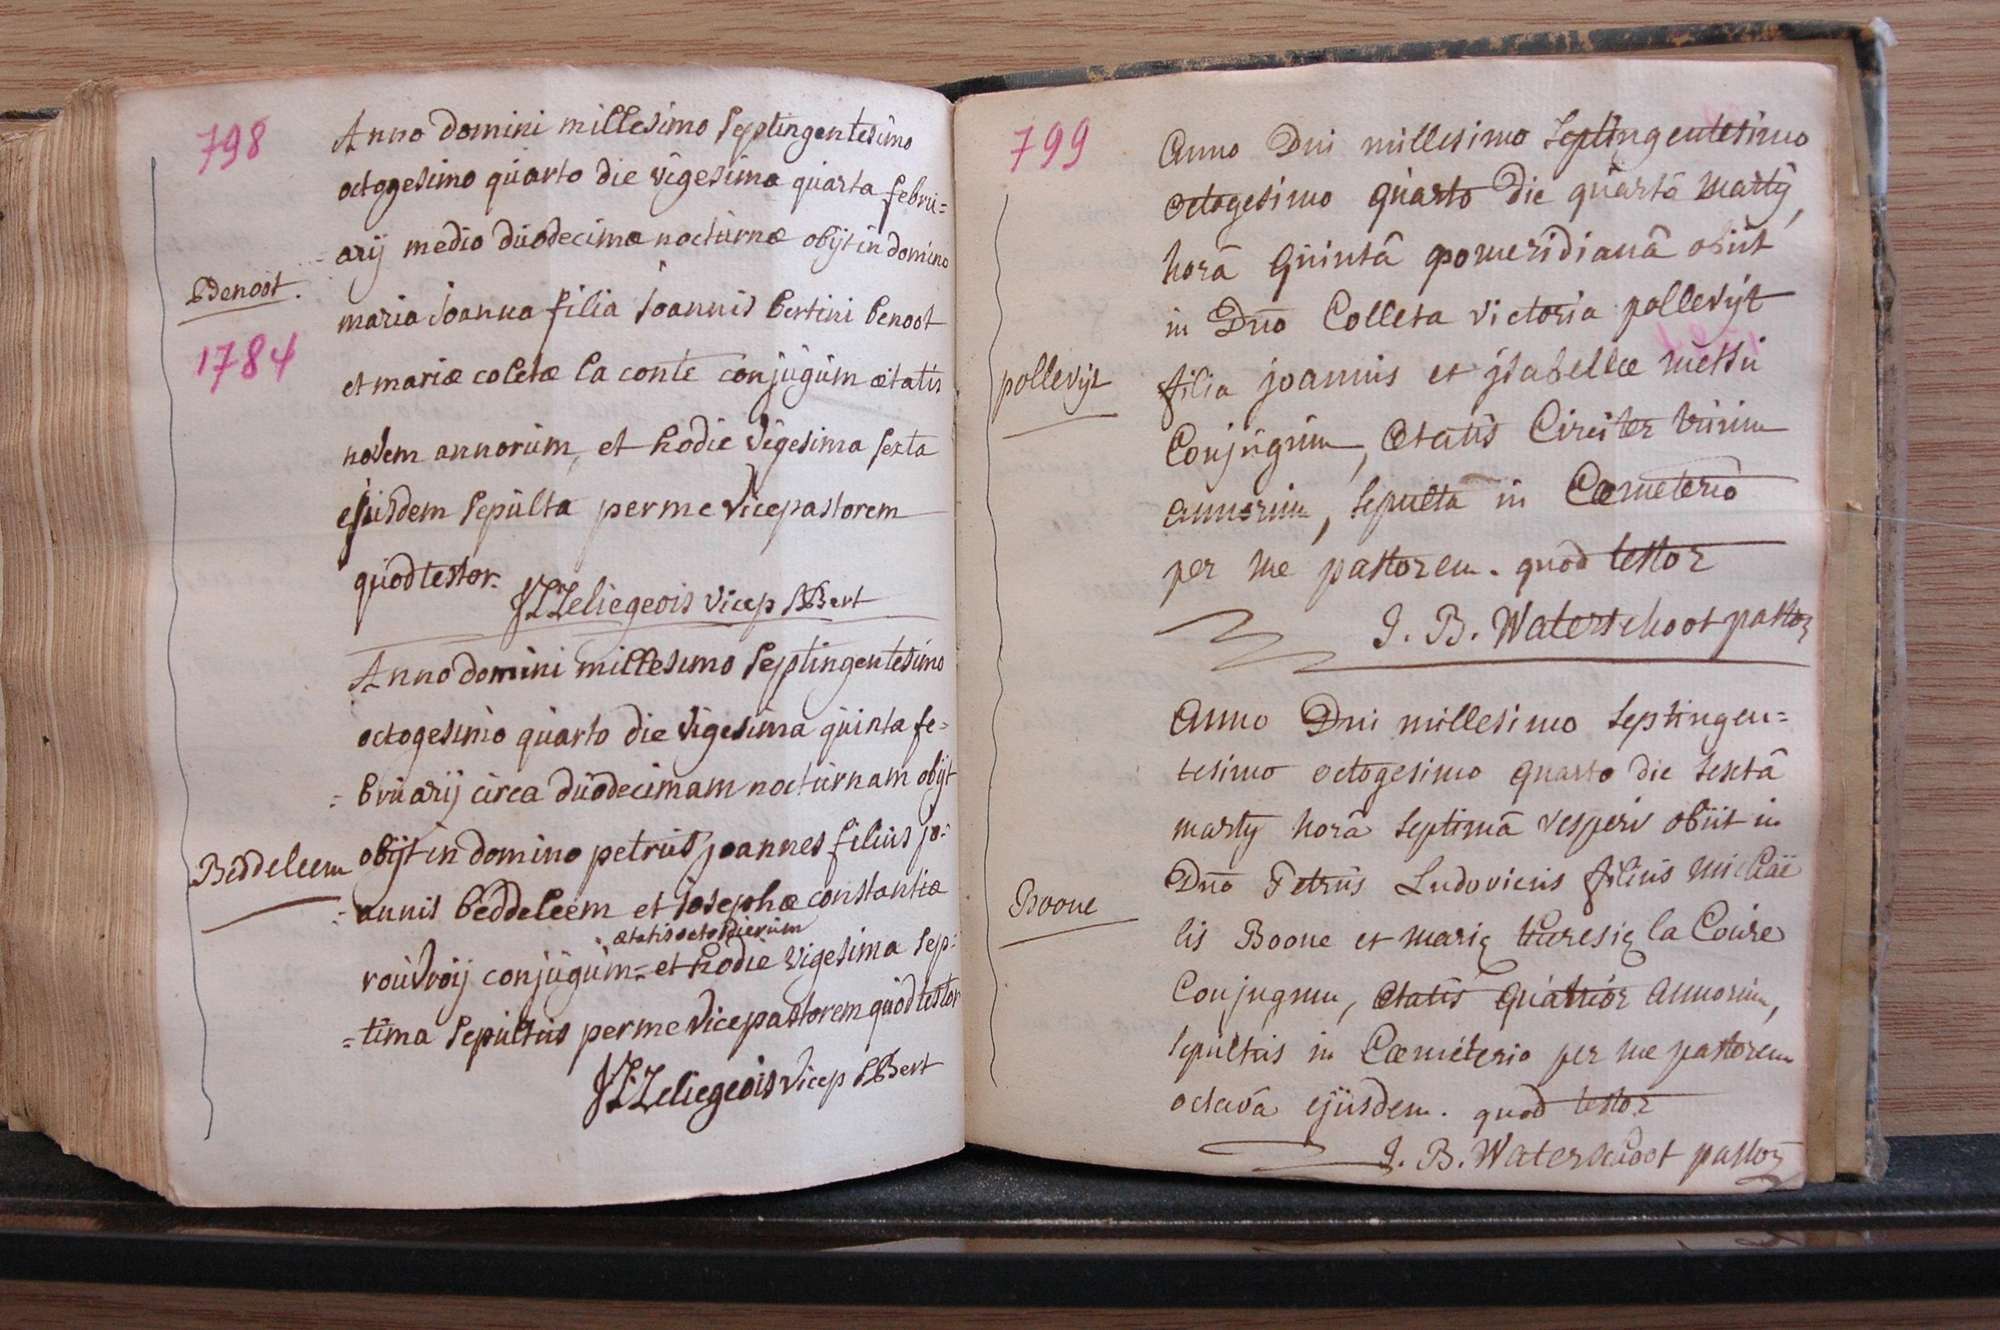 798
Anno domini millesimo septingentesimo
octogesimo quarto die vigesima quarta febru=
=arij medio duodecimæ nocturnæ obijt in domino
Benoot.
maria joanna filia joannis bertini benoot
1784
et mariæ coletæ la conte conjugum ætatis
novem annorum, et hodie vigesima sexta
ejusdem sepulta per me vicepastorem
quod testor.
Leliegeois vicep SBBert
Anno domini millesimo septingentesimo
octogesimo quarto die vigesima quinta fe=
=bruarij circa duodecimam nocturnam obijt
Beddeleem
obijt in domino petrus joannes filius jo=
=annis beddeleem et josephæ constantiæ
ætatis octo dierum
rouvroij conjugum = et hodie vigesima sep=
=tima sepultus per me vicepastorem quod testor
Leliegeois vicep SBBert
799
Anno Dni millesimo septingentesimo
octogesimo quarto die quartâ martij,
horâ quintâ pomeridianâ obiit
in Dno Colleta victoria pollevijt
pollevijt
filia joannis et jsabellæ messu
Conjugum, ætatis Circiter trium
annorum, sepulta in Cœmeterio
per me pastorem. quod testor
J. B. Waterschoot pastor
Anno Dni millesimo septingen=
tesimo octogesimo quarto die sextâ
martij horâ septimâ vesperi obiit in
Dno Petrus Ludovicus filius Michaë
Boone
lis Boone et marię theresię la Coire
Conjugum, ætatis quatuor annorum,
sepultus in Cœmeterio per me pastorem
octava ejusdem. quod testor
J. B. Waterschoot pastor